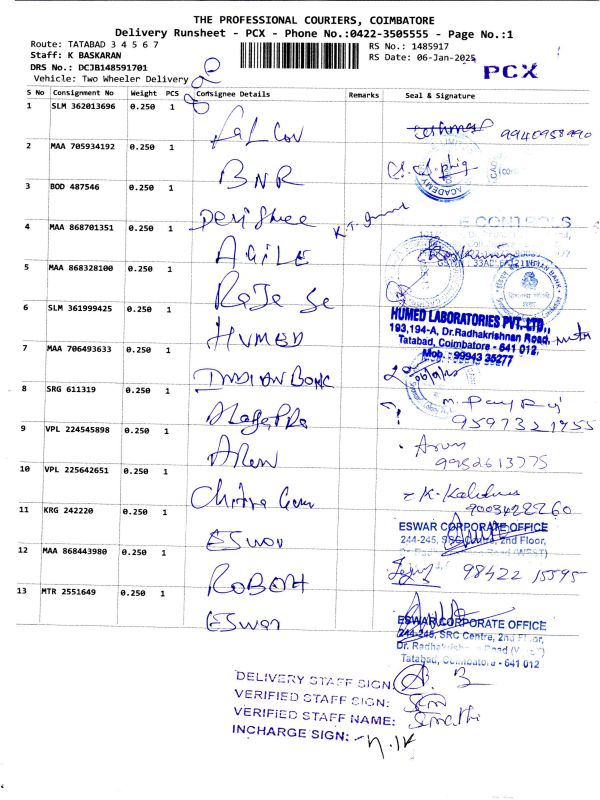 THE PROFESSIONAL COURIERS, COIMBATORE
Delivery Runsheet - PCX - Phone No.:0422-3505555 - Page No.:1
Route: TATABAD 3 4 5 6 7
RS No.: 1485917
Staff: K BASKARAN
RS Date: 06-Jan-2025
DRS No.: DCJB148591701
PCX
Vehicle: Two Wheeler Delivery
S No Consignment No Weight PCS Consignee Details Remarks Seal & Signature
1 SLM 362013696 0.250 1 FALCON
2 MAA 705934192 0.250 1 BNR
3 BOD 487546 0.250 1 Devi shree
4 MAA 868701351 0.250 1 AGILE
5 MAA 868328100 0.250 1
6 SLM 361999425 0.250 1 HUMED
HUMED LABORATORIES PVT. LTD.,
193,194-A, Dr.Radhakrishnan Road,
Tatabad, Coimbatore - 641 012,
Mob. : 99943 35277
7 MAA 706493633 0.250 1 INDIAN BANK
8 SRG 611319 0.250 1
9 VPL 224545898 0.250 1 Arun Arun
9952613775
10 VPL 225642651 0.250 1
9003422260
11 KRG 242220 0.250 1 ESwar
ESWAR CORPORATE OFFICE
244-245, SRC Centre, 2nd Floor,
12 MAA 868443980 0.250 1 ROBERT 98422 15595
13 MTR 2551649 0.250 1 ESwar
ESWAR CORPORATE OFFICE
244-245, SRC Centre, 2nd Floor,
Dr. Radhakrishnan Road (West)
Tatabad, Coimbatore - 641 012
DELIVERY STAFF SIGN:
VERIFIED STAFF SIGN:
VERIFIED STAFF NAME:
INCHARGE SIGN: